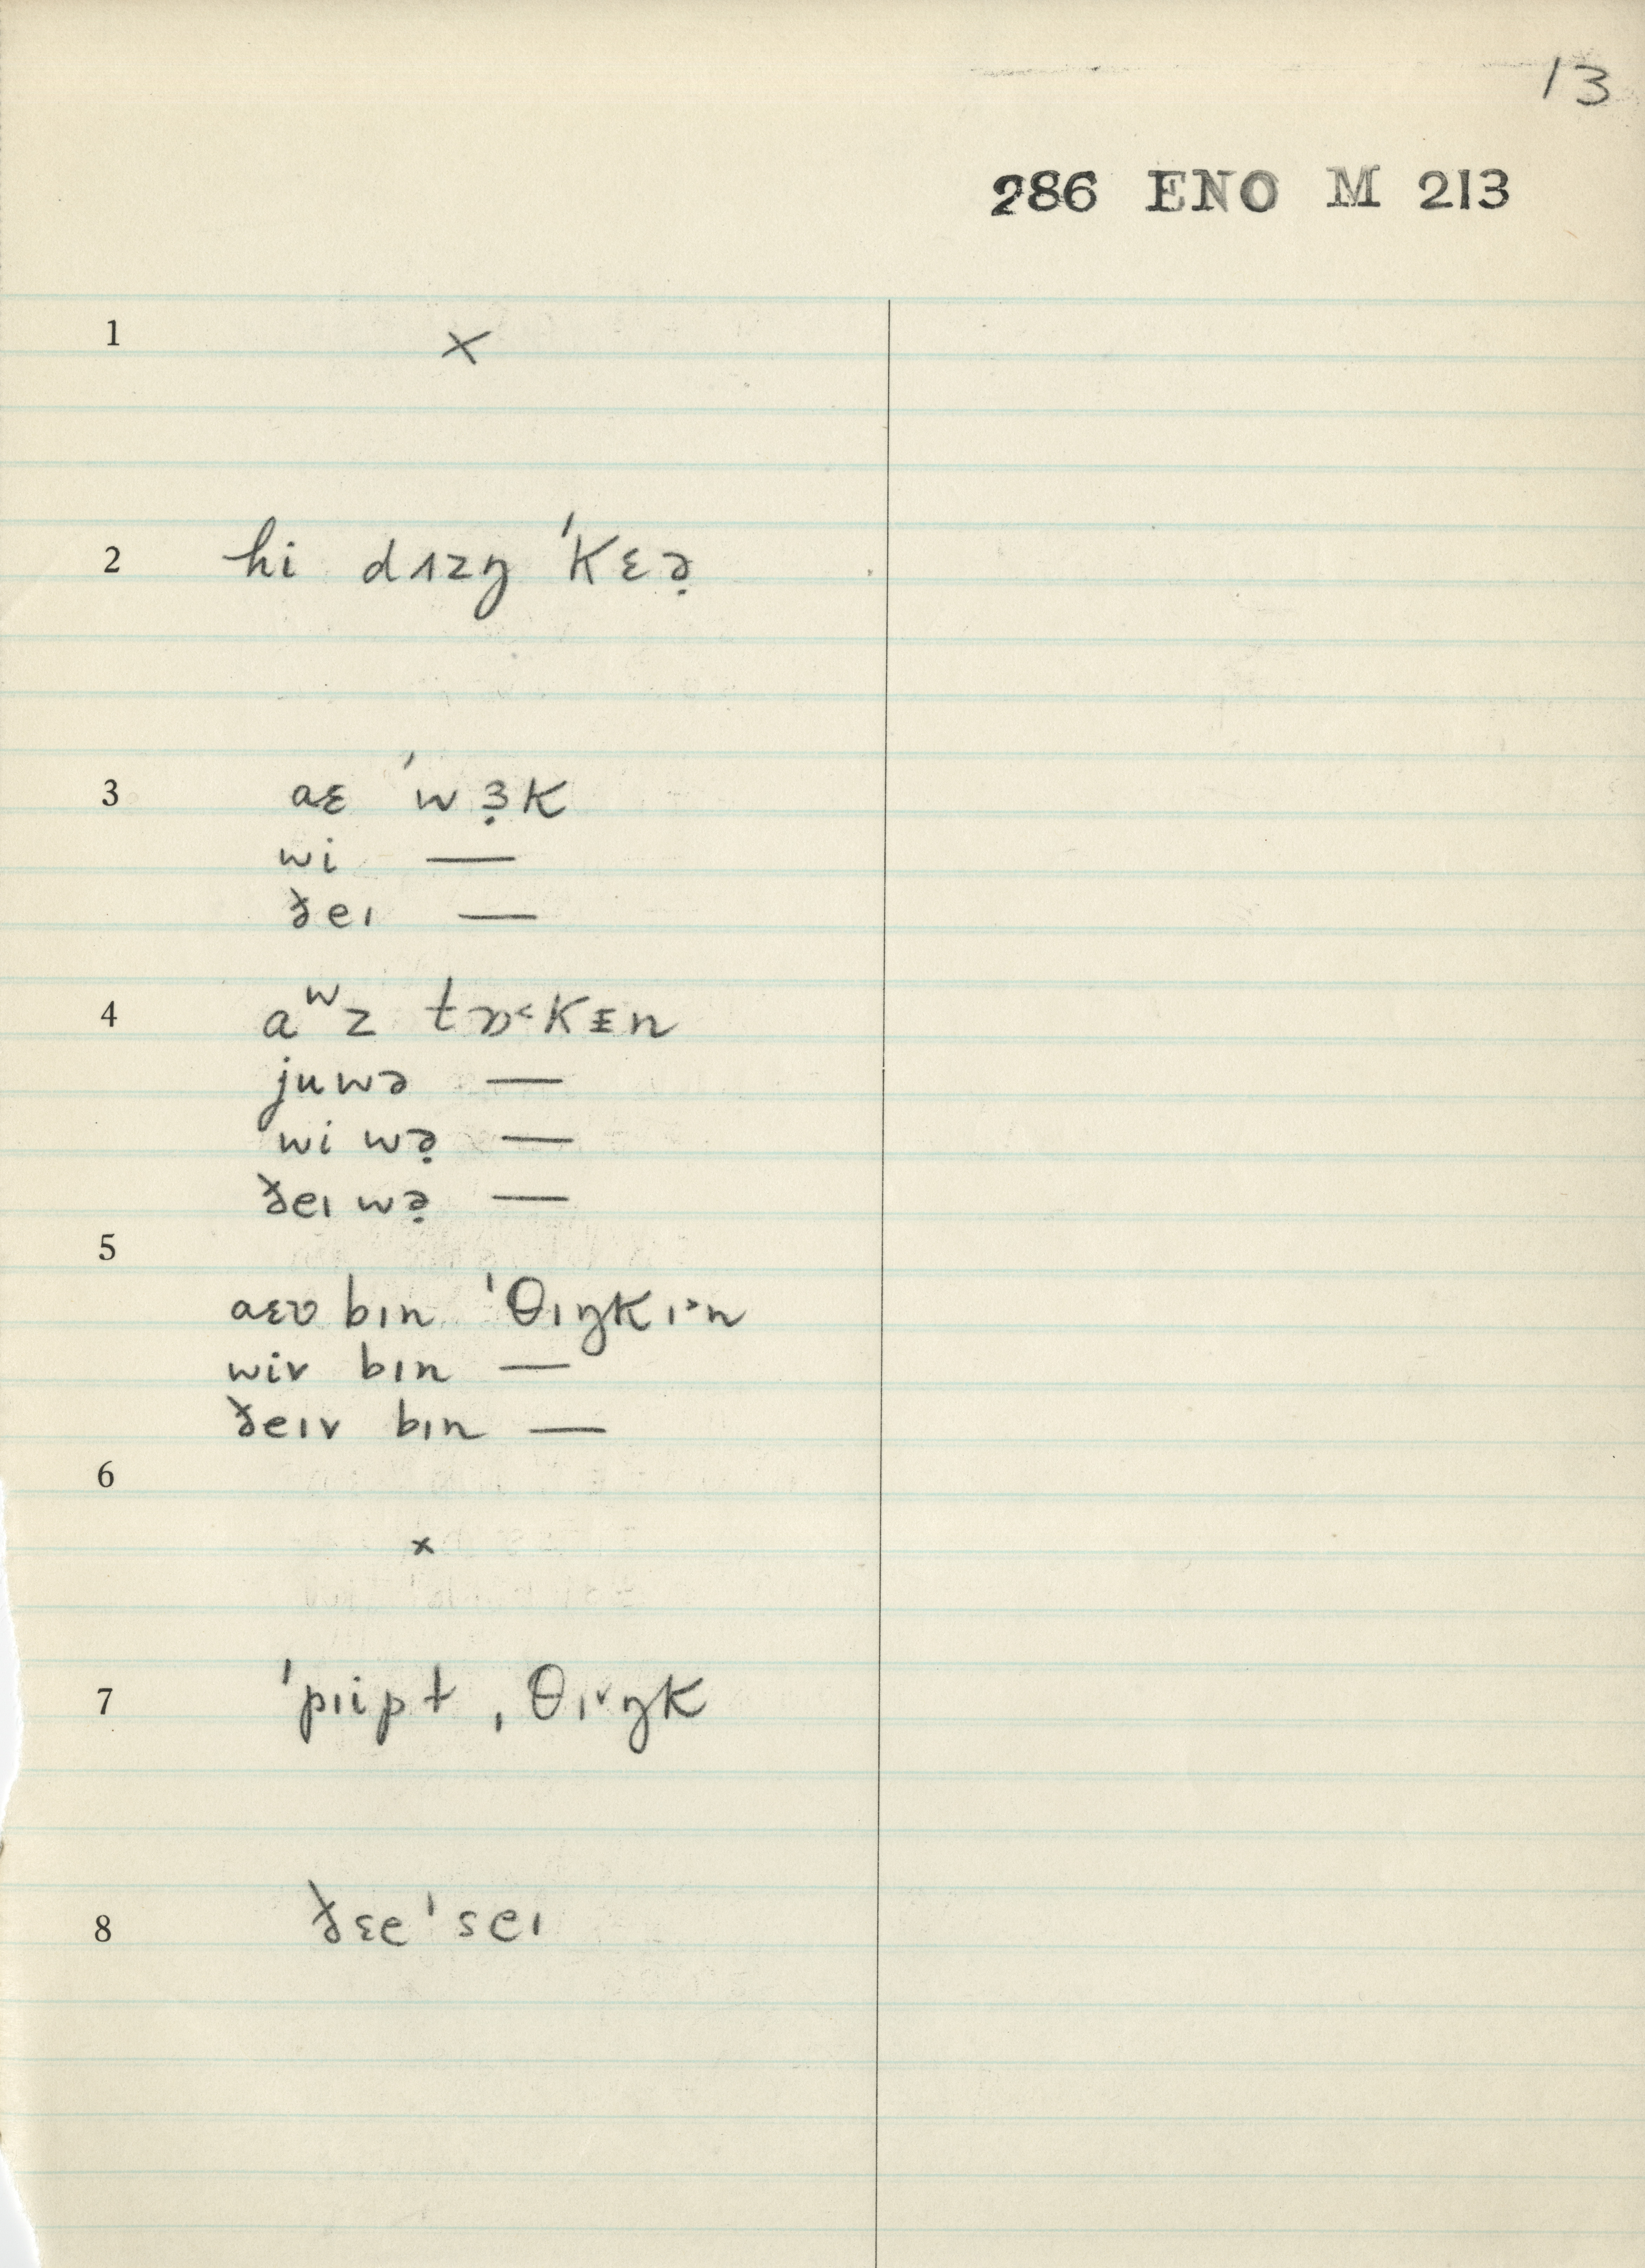 13
286 ENO M 213
1 ×
2 hi dʌzŋ ˈkɛə̣
3 aɛ ˈwɜ̣k
wi —
ðeɪ —
4 aʷz tɒ˂kᵻn
juwə —
wi wə̣ —
ðeɪ wə̣ —
5
aɛv bɪn ˈθɪŋkɪ˃n
wiv bɪn —
ðeɪv bɪn —
6
×
7 ˈpɪipt , θɪ˅ŋk
8 ðɛe ˈseɪ